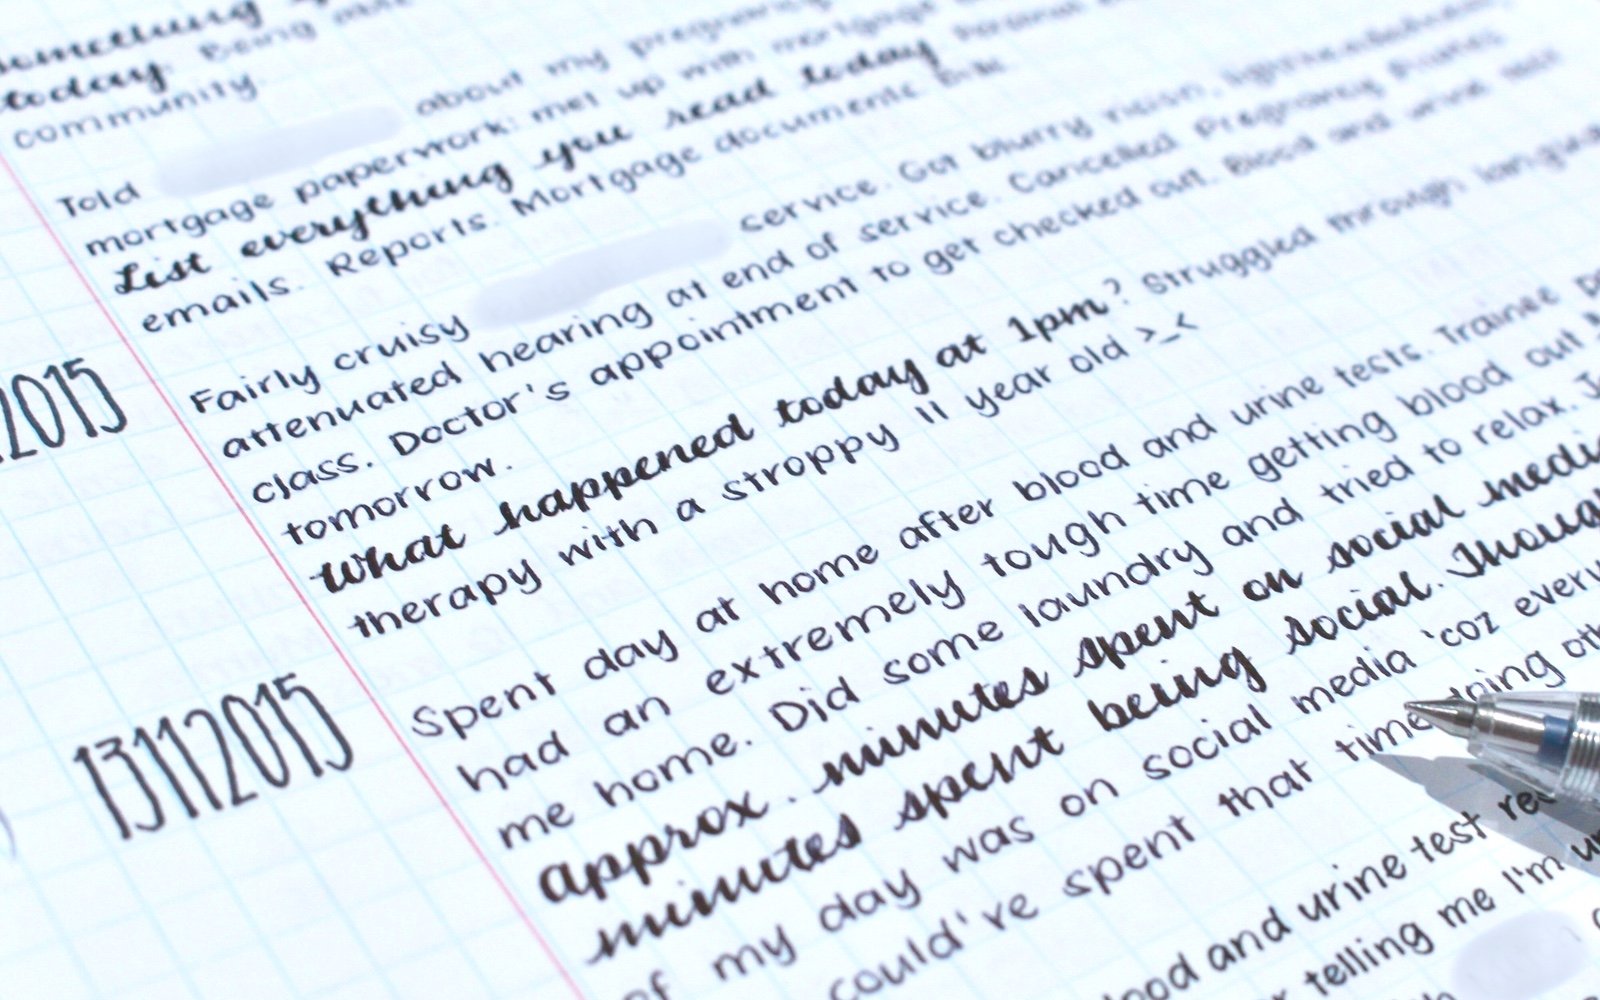 something
today. Being
community
Told about my pregnancy
mortgage paperwork: met up with mortgage
List everything you read today. Personal
emails. Reports. Mortgage documents
2015
Fairly cruisy service. Got blurry vision, lightheadedness,
attenuated hearing at end of service. Cancelled Pregnancy Pilates
class. Doctor's appointment to get checked out. Blood and urine tests
tomorrow.
What happened today at 1pm? Struggled through language
therapy with a stroppy 11 year old >_<
13112015
Spent day at home after blood and urine tests. Trainee
had an extremely tough time getting blood out
me home. Did some laundry and tried to relax.
Approx. minutes spent on social media
minutes spent being social.
of my day was on social media 'coz every
could've spent that time doing
blood and urine test
telling me I'm